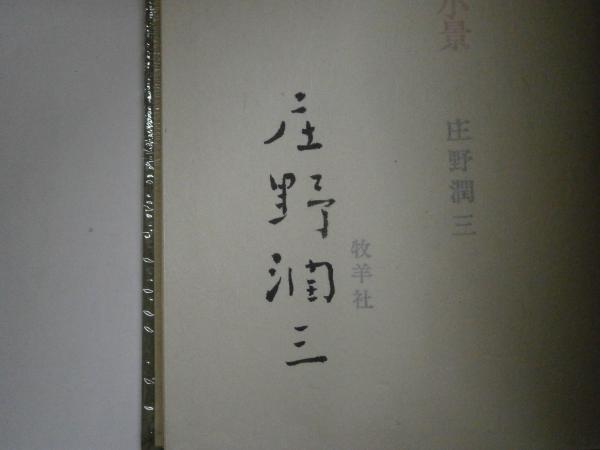 景
庄野潤三
牧羊社
庄野潤三